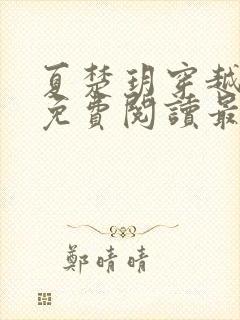 夏楚玥穿越
免費閱讀最
鄭晴晴